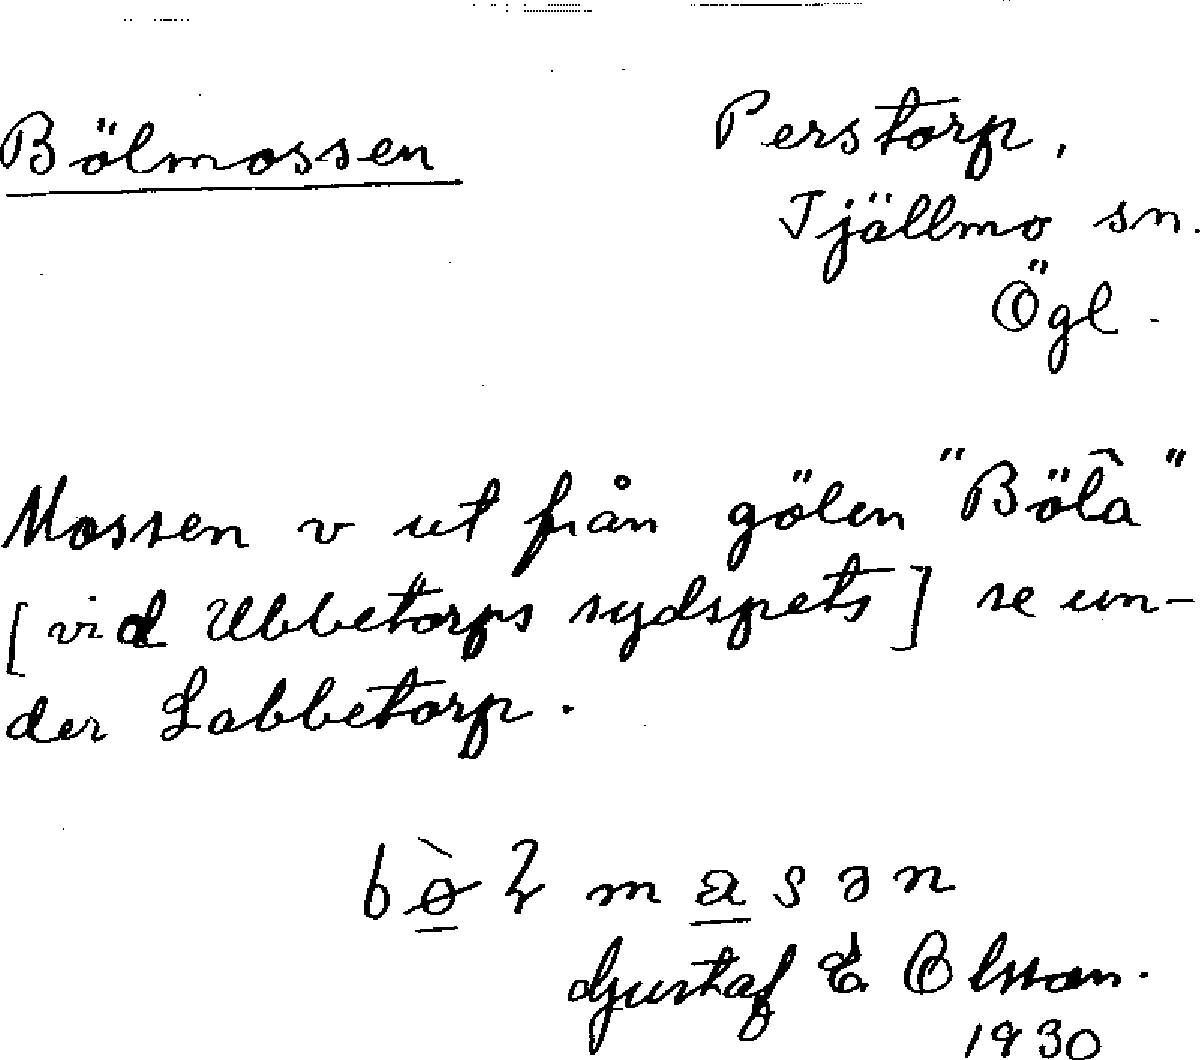 Bölmossen
Perstorp,
Tjällmo sn.
Ögl.
Mossen v ut från gölen "Böla"
[vid Ubbetorps sydspets] se un-
der Labbetorp.
Gustaf E. Olsson.
1930